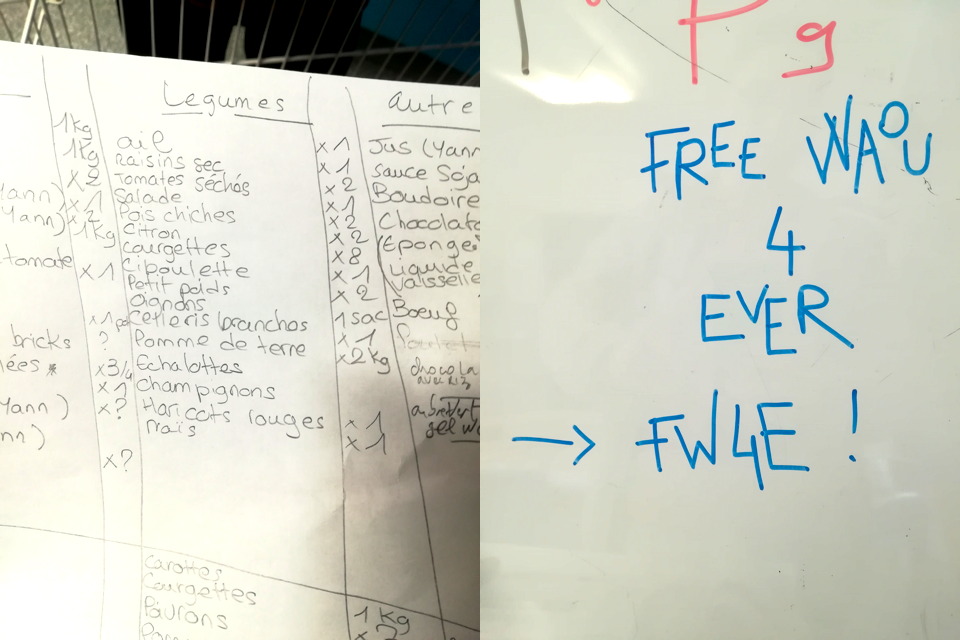 Legumes
Autre
1Kg
1Kg
x2
x1
x2
1Kg
x1
ail
Raisins sec
Tomates séchés
Salade
Pois chiches
Citron
Courgettes
Ciboulette
Petit poids
Oignons
Celleris branches
Pomme de terre
Echalottes
Champignons
Haricots rouges
Maïs
x1
x1
x2
x1
x2
x2
x8
x1
x2
1 sac
x1
x2Kg
x1
x1
Jus (Yann
Sauce Soja
Boudoire
Chocolat
Eponge
Liquide
vaisselle
Boeuf
tomate
bricks
Yann)
?
x3/4
x1
x?
x?
Carottes
Courgettes
Poivrons
1 Kg
P g
FREE WAOU
4
EVER
→ FW4E !